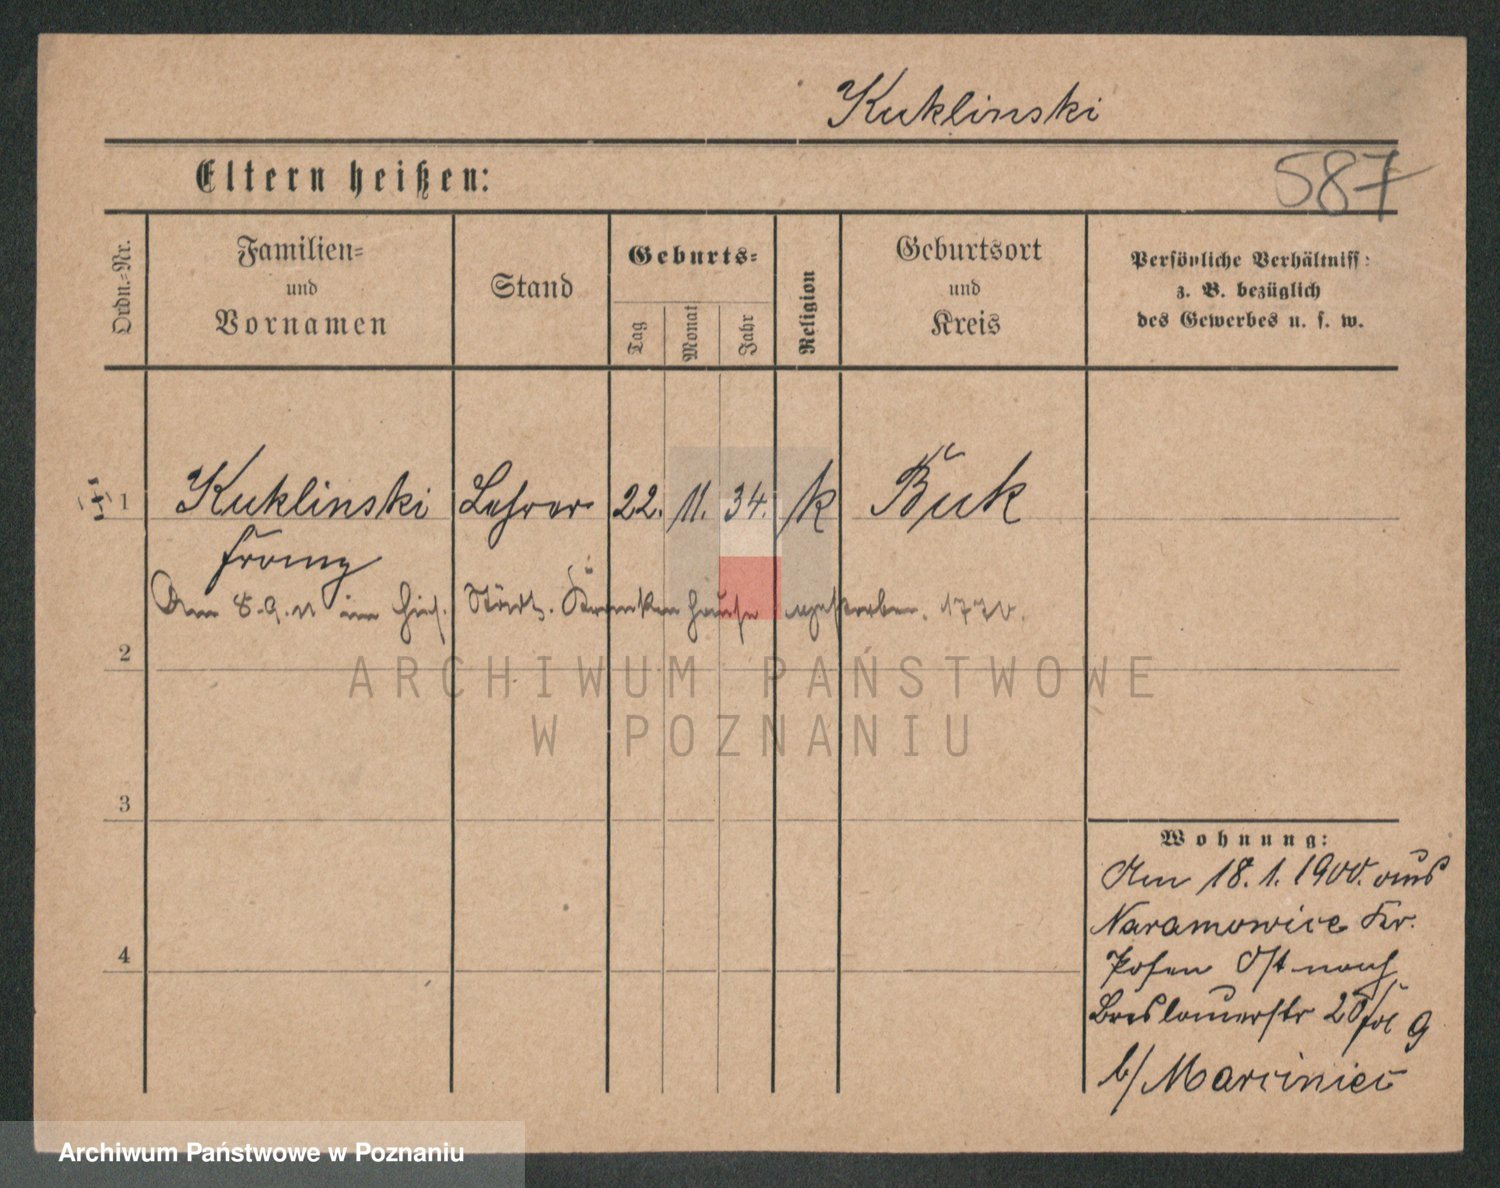 Kuklinski
Eltern heißen:
587
Ordn.-Nr.
Familien-
und
Vornamen
Stand
Geburts-
Tag
Monat
Jahr
Religion
Geburtsort
und
Kreis
Persönliche Verhältniss:
z. B. bezüglich
des Gewerbes u. s. w.
1
Kuklinski Lehrer 22. 11. 34. k Buk
Franz
Am 8.9.11 im hies. Städt. Krankenhause gestorben. 1770.
2
ARCHIWUM PAŃSTWOWE
W POZNANIU
3
4
Wohnung:
Am 18.1.1900. aus
Naramowice Kr.
Posen Ost nach
Breslauerstr 20 9
b/Marciniec
Archiwum Państwowe w Poznaniu